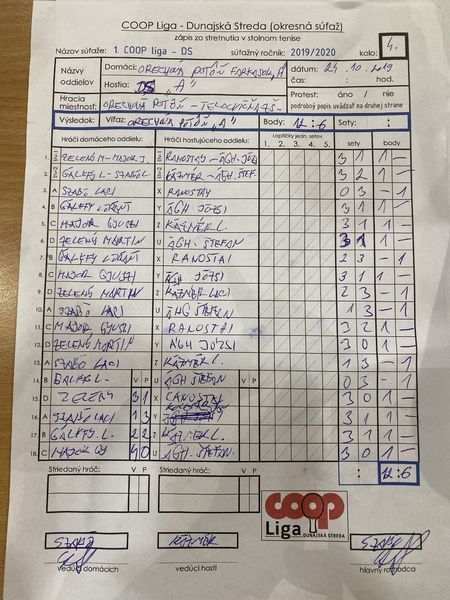 COOP Liga - Dunajská Streda (okresná súťaž)
zápis zo stretnutia v stolnom tenise
Názov súťaže: 1. COOP liga - DS súťažný ročník: 2019/2020 kolo: 4.
Názvy oddielov
Domáci: ORECHOVÁ POTÔŇ FARKASOK „A"
Hostia: DS „A"
dátum: 24 10 2019
čas: : hod.
Hracia miestnosť: ORECHOVÁ POTÔŇ - TELOCVIČŇA ZŠ
Protest: áno / nie
podrobný popis uvádzať na druhej strane
Výsledok: Víťaz: ORECHOVÁ POTÔŇ „A" Body: 12 : 6 Sety: :
Hráči domáceho oddielu: Hráči hosťujúceho oddielu: Loptičky jedn. setov sety body
1. 2. 3. 4. 5.
1. ZELENÝ M-MAJOR J. RANOSTAY - ÁGH JÓZSI 3 1 1 -
2. GÁLFFY L.-SZABÓ L. KÁZMÉR - ÁGH ŠTEF. 3 2 1 -
3. A SZABÓ LACI X RANOSTAY 0 3 - 1
4. B GÁLFFY LÓRÁNT Y ÁGH JÓZSI 3 1 1 -
5. C MAJOR GYUSZI Z KÁZMÉR L. 3 1 1 -
6. D ZELENÝ MARTIN U ÁGH ŠTEFAN 3 1 1 -
7. B GÁLFFY LÓRÁNT X RANOSTAI 2 3 - 1
8. C MAJOR GYUSZI Y ÁGH JÓZSI 3 1 1 -
9. D ZELENÝ MARTIN Z KÁZMÉR LACI 2 3 - 1
10. A SZABÓ LACI U ÁGH ŠTEFAN 1 3 - 1
11. C MAJOR GYUSZI X RANOSTAI 3 2 1 -
12. D ZELENÝ MARTIN Y ÁGH JÓZSI 3 0 1 -
13. A SZABÓ LACI Z KÁZMÉR L. 1 3 - 1
14. B GÁLFFY L. V P U ÁGH ŠTEFAN 0 3 - 1
15. D ZELENÝ 3 1 X RANOSTAI 3 0 1 -
16. A SZABÓ LACI 1 3 Y 3 1 1 -
17. B GÁLFFY L. 2 2 Z KÁZMÉR L. 3 1 1 -
18. C MAJOR GY 4 0 U ÁGH ŠTEFAN 3 0 1 -
Striedaný hráč: V P Striedaný hráč: V P : 12 : 6
coop
Liga DUNAJSKÁ STREDA
SZABÓ KÁZMÉR SZABÓ
vedúci domácich vedúci hostí hlavný rozhodca